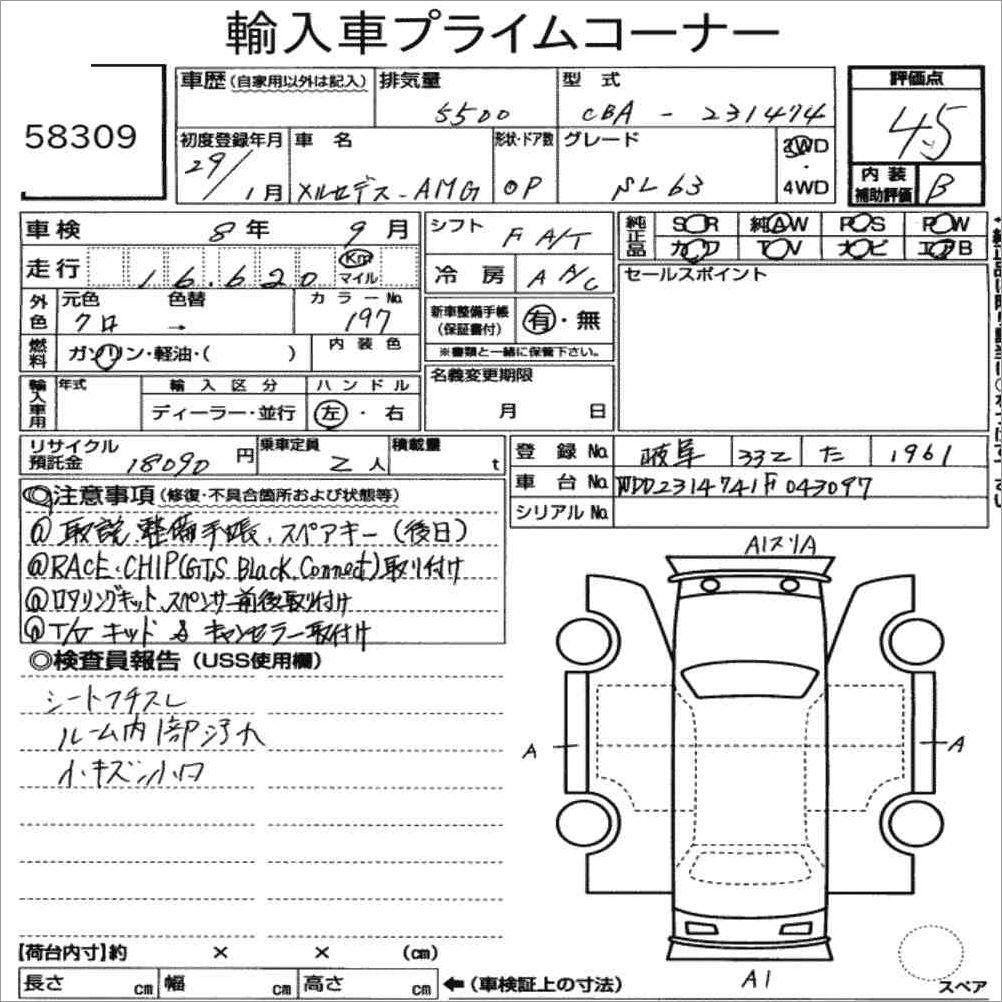 輸入車プライムコーナー
58309
車歴(自家用以外は記入) 排気量 型式 評価点
5500 CBA - 231474 4.5
初度登録年月 車名 形状・ドア数 グレード 2WD・4WD
29/1月 メルセデス-AMG OP SL63
内装補助評価 B
車検 8年 9月 シフト F A/T
純正品 SR 純AW PS PW
カワ TV ナビ エアB
走行 16,620 Km マイル 冷房 A A/C
セールスポイント
外色 元色 色替 カラーNo.
クロ → 197
新車整備手帳(保証書付) 有・無
※書類と一緒に保管下さい。
燃料 ガソリン・軽油・( ) 内装色
名義変更期限
月 日
輸入車用 年式 輸入区分 ハンドル
ディーラー・並行 左・右
リサイクル預託金 18090円 乗車定員 2人 積載量 t
登録No. 岐阜 332 た 1961
車台No. WDD2314741F043097
シリアルNo.
◎注意事項(修復・不具合箇所および状態等)
取説、整備手帳、スペアキー(後日)
RACE.CHIP(GTS Black.Connect)取り付け
ロアリングキット、スペンサー前後取り付け
T/Vキッド&キャンセラー取付け
◎検査員報告(USS使用欄)
シートフチスレ
ルーム内1部汚れ
小キズ小凹
A1スリA
A
A
A1
スペア
【荷台内寸】約 × × (cm)
長さ cm 幅 cm 高さ cm ←(車検証上の寸法)